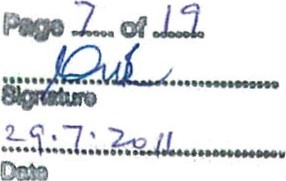 Page 7 of 19
Signature
29.7.2011
Date